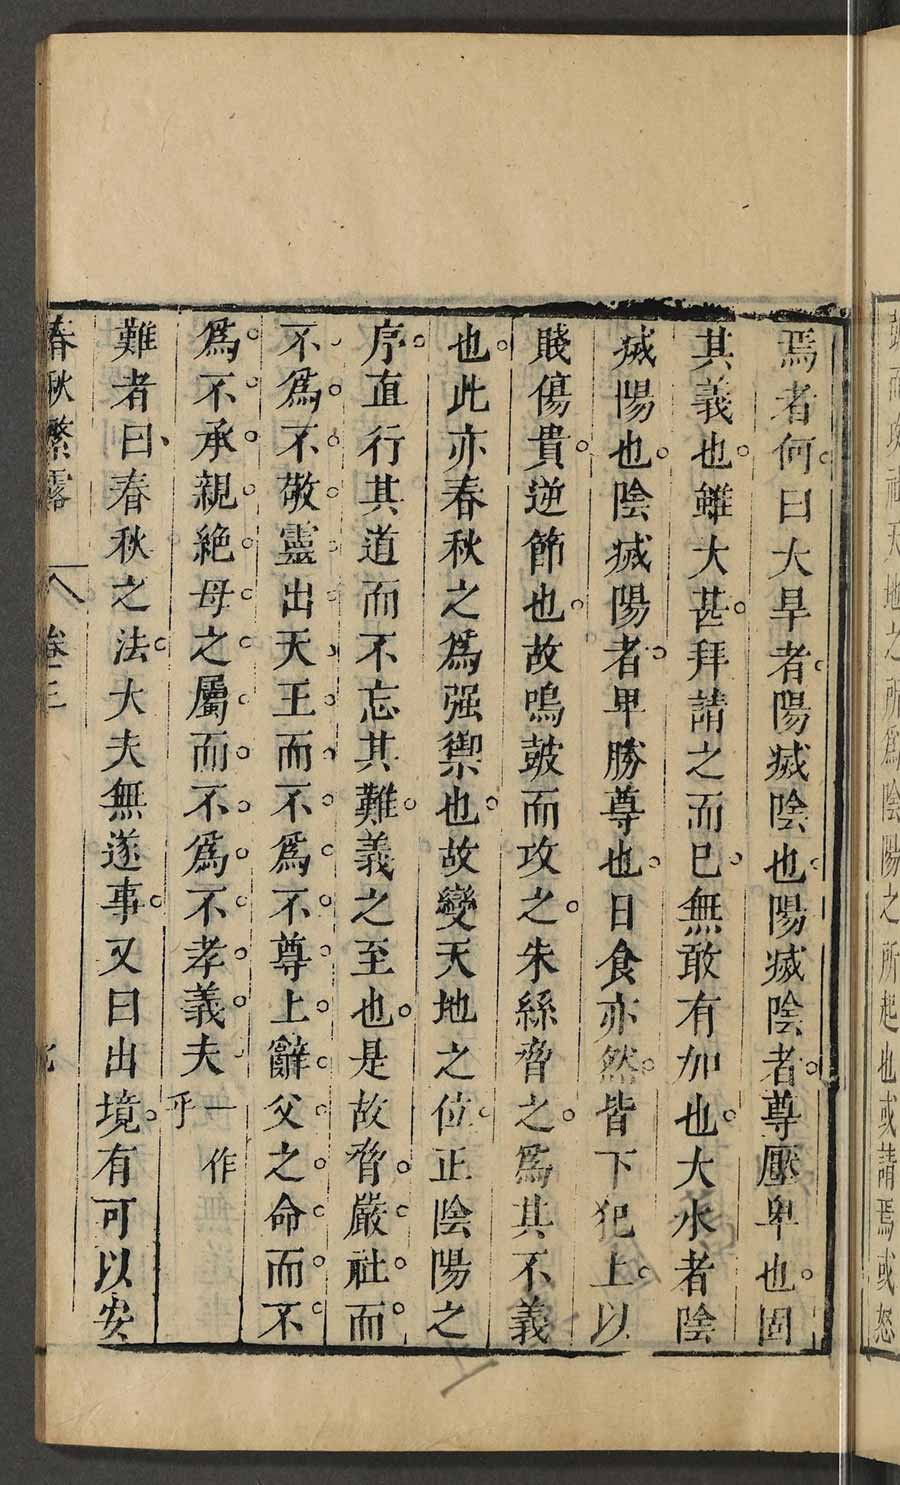 鼓而攻社天地之所爲陰陽之所起也或請焉或怒
焉者何曰大旱者陽滅陰也陽滅陰者尊壓卑也固
其義也雖大甚拜請之而已無敢有加也大水者陰
滅陽也陰滅陽者卑勝尊也日食亦然皆下犯上以
賤傷貴逆節也故鳴鼓而攻之朱絲脅之爲其不義
也此亦春秋之爲强禦也故變天地之位正陰陽之
序直行其道而不忘其難義之至也是故脅嚴社而
不爲不敬靈出天王而不爲不尊上辭父之命而不
爲不承親絶母之屬而不爲不孝義夫一作乎
難者曰春秋之法大夫無遂事又曰出境有可以安
春秋繁露 卷三